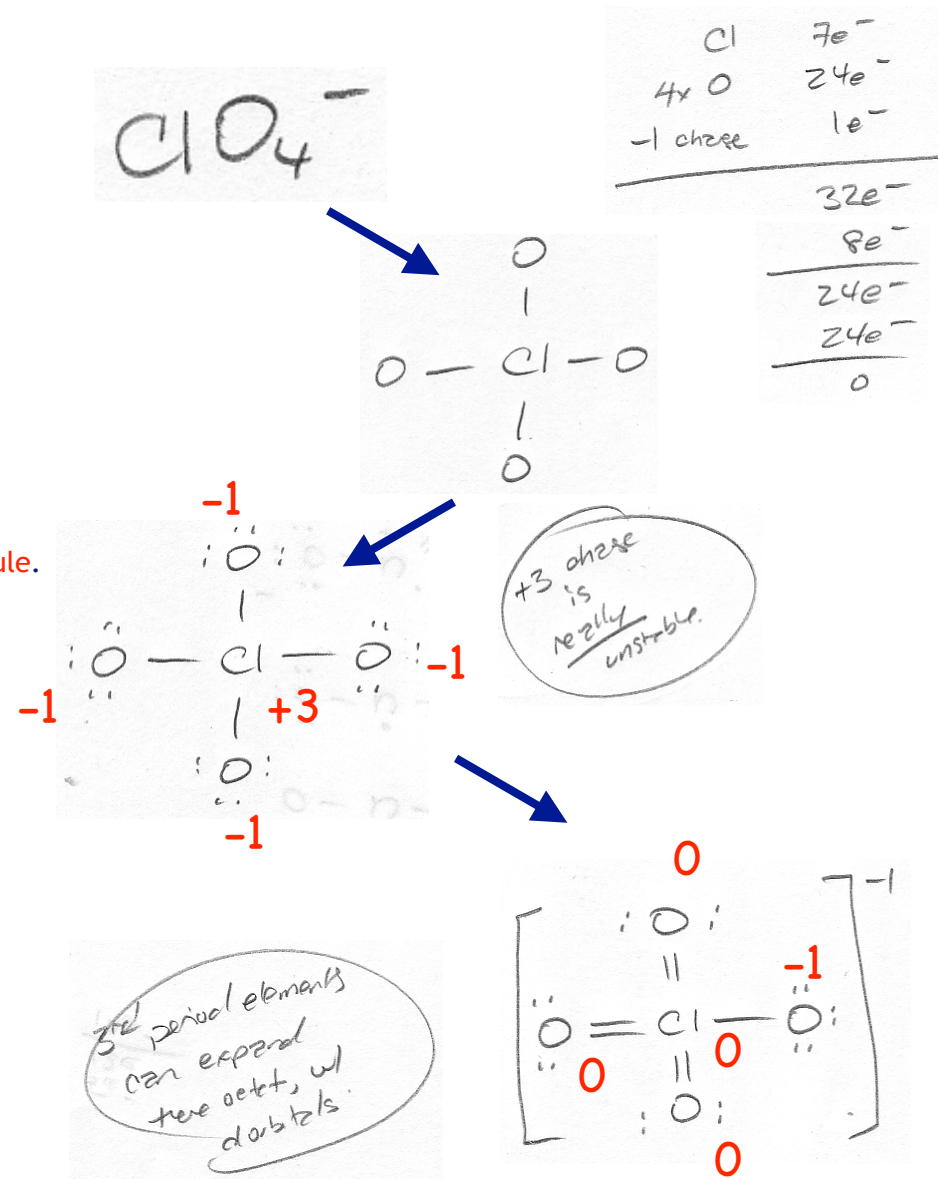 Cl 7e⁻
4x O 24e⁻
-1 charge 1e⁻
32e⁻
8e⁻
24e⁻
24e⁻
0
ClO₄⁻
O
|
O — Cl — O
|
O
ule.
-1
:Ö:
|
:O — Cl — O: -1
-1 +3
|
:O:
-1
+3 charge
is
really
unstable.
0
-1
:O:
||
O = Cl — O:
0 0
||
:O:
0
-1
3rd period elements
can expand
there octet, w/
d orbitals.